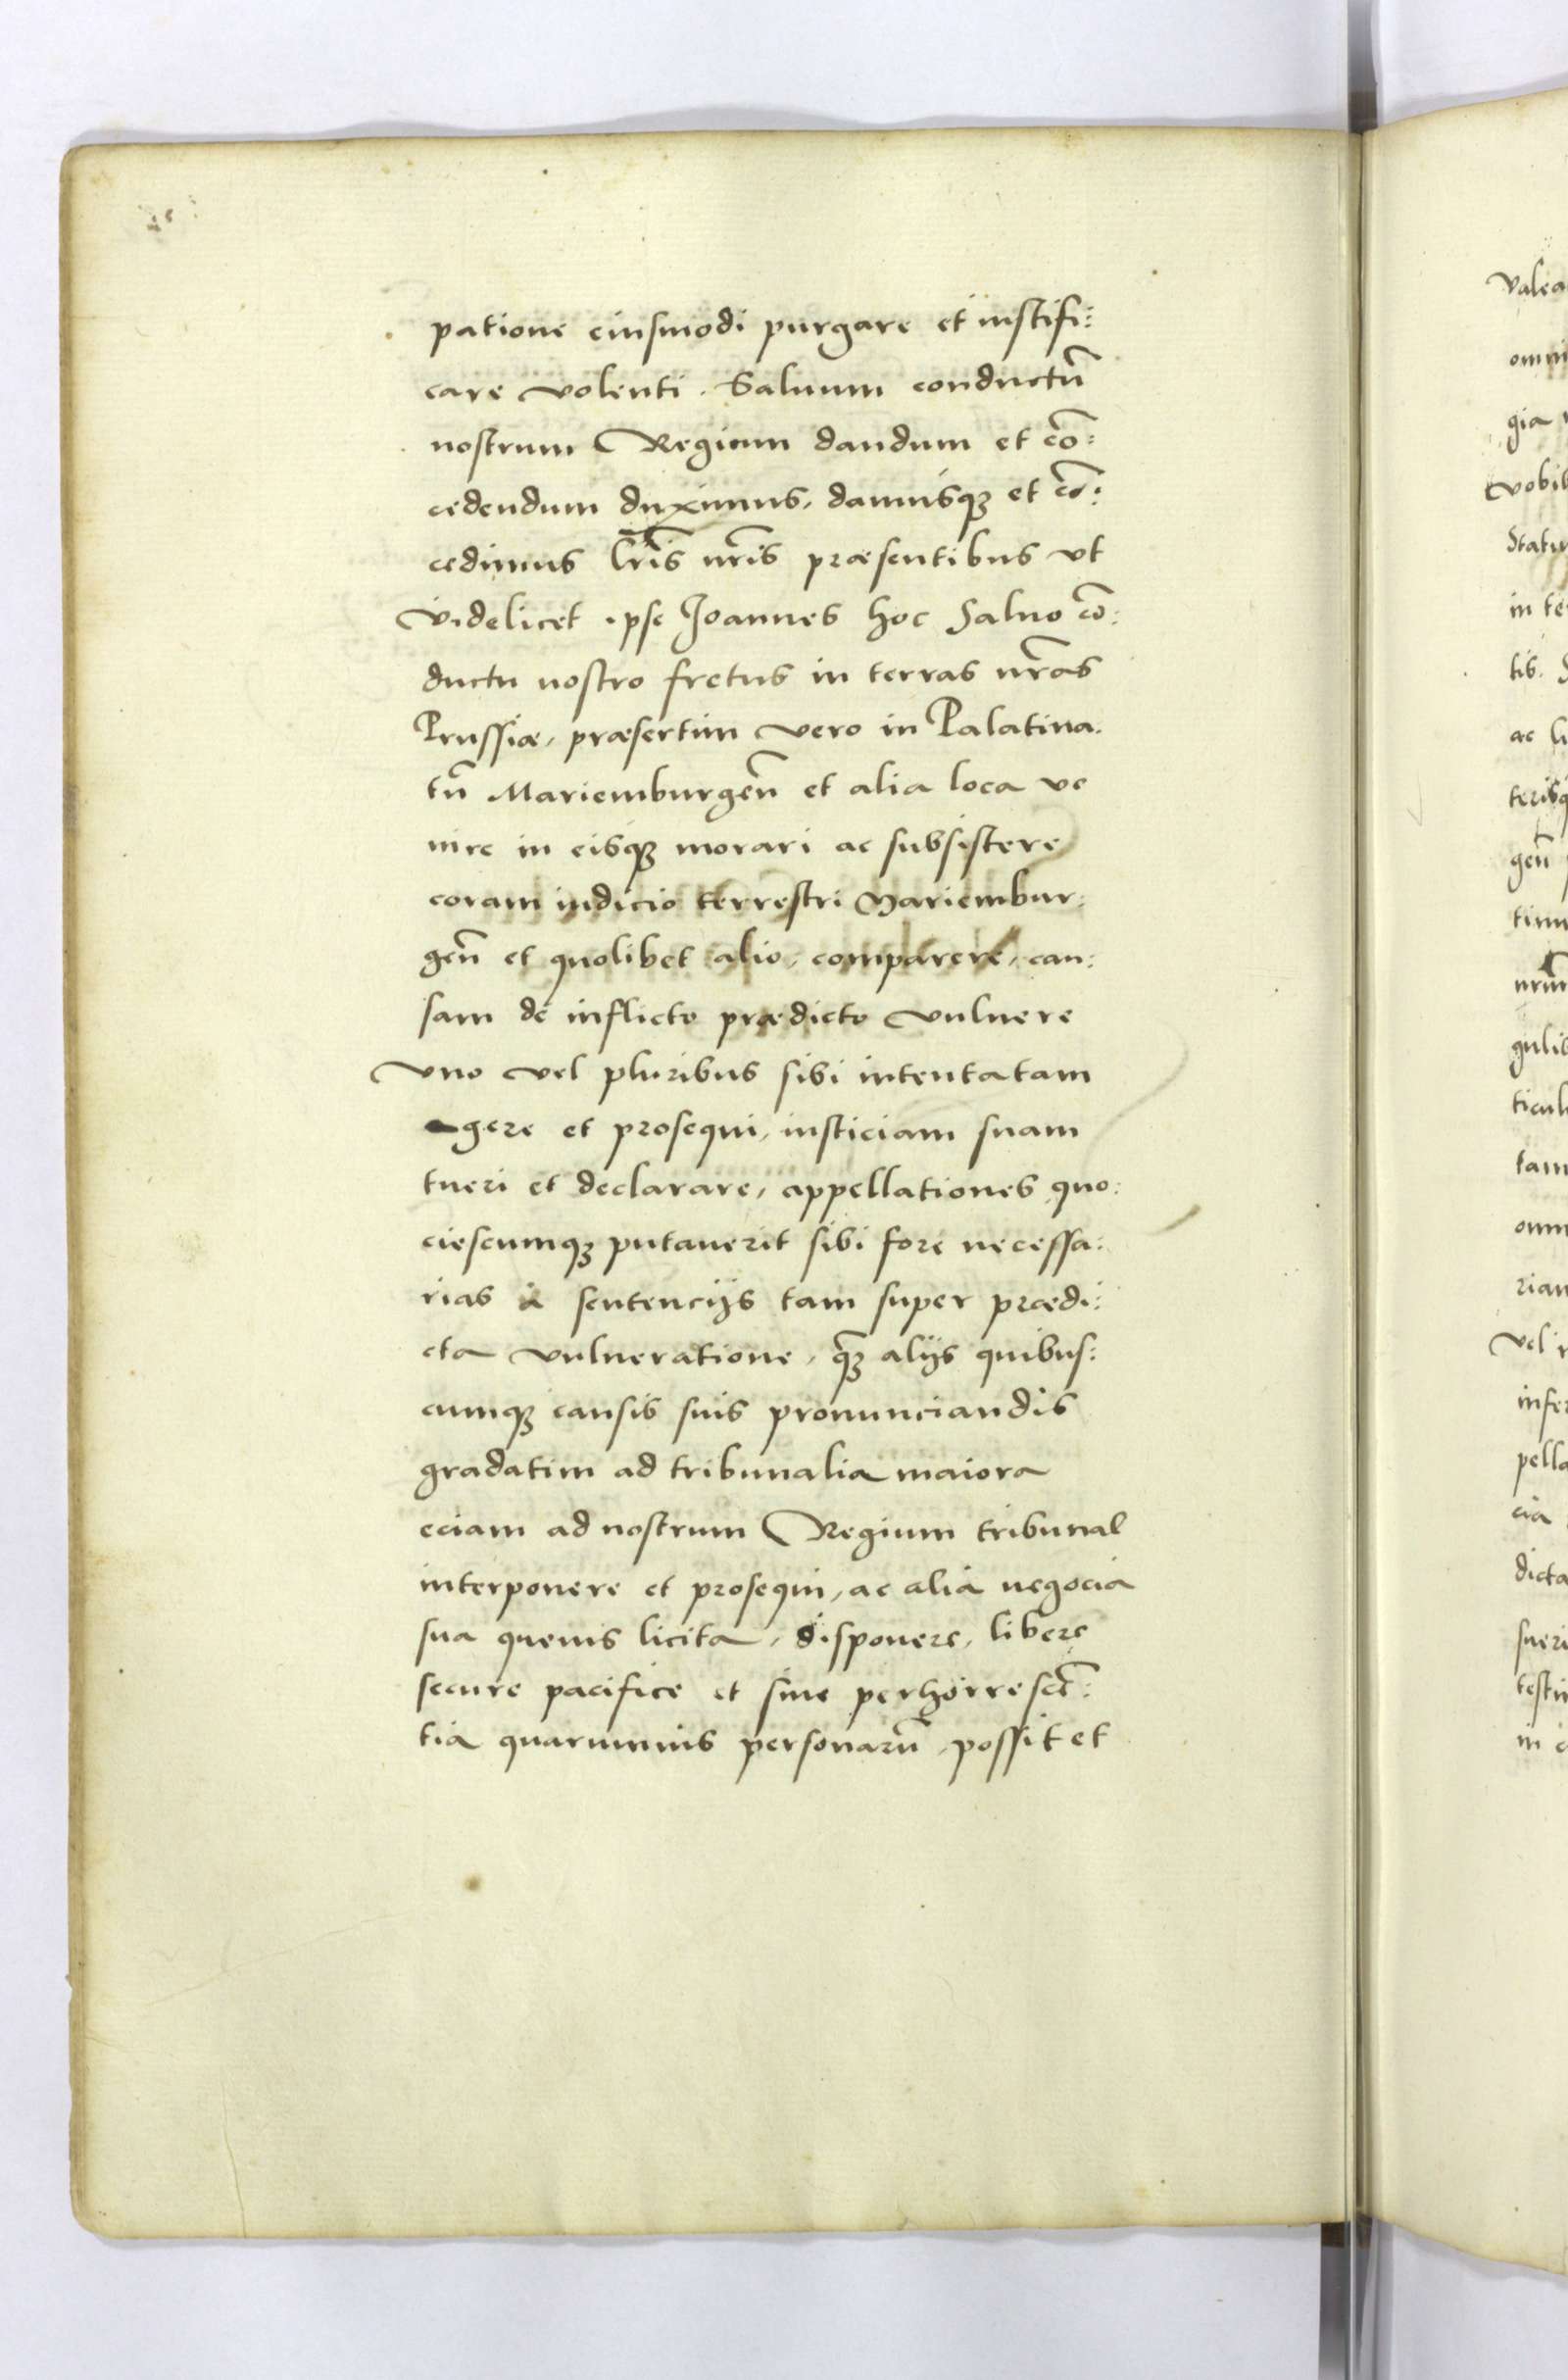 patione eiusmodi purgare et iustifi:
care volenti. Saluum conductũ
nostrum Regium dandum et cõ:
cedendum duximus, damusqꝫ et cõ:
cedimus lr̃is nr̃is præsentibus vt
videlicet ipse Joannes hoc Saluo cõ:
ductu nostro fretus in terras nr̃as
Prussiæ, præsertim vero in Palatina:
tũ Mariemburgeñ et alia loca ve
nire in eisqꝫ morari ac subsistere
coram iudicio terrestri Mariembur:
geñ et quolibet alio, comparere, cau:
sam de inflicto prædicto vulnere
vno vel pluribus sibi intentatam
agere et prosequi, iusticiam suam
tueri et declarare, appellationes quo:
ciescumqꝫ putauerit sibi fore necessa:
rias a sentencijs tam super prædi:
cta vulneratione, qꝫ̃ alijs quibus:
cumqꝫ causis suis pronunciandis
gradatim ad tribunalia maiora
eciam ad nostrum Regium tribunal
interponere et prosequi, ac alia negocia
sua queuis licita, disponere, libere
secure pacifice et sine perhorrescẽ:
tia quarumuis personarũ, possit et
valea
omni
gia
vobis
Statu
in te
tis.
ac li
terisq
geñ
tim
nrm̃
gulis
ticul
tam
omn
rian
vel i
infer
pella
cia
dicta
sueri
testi
in c